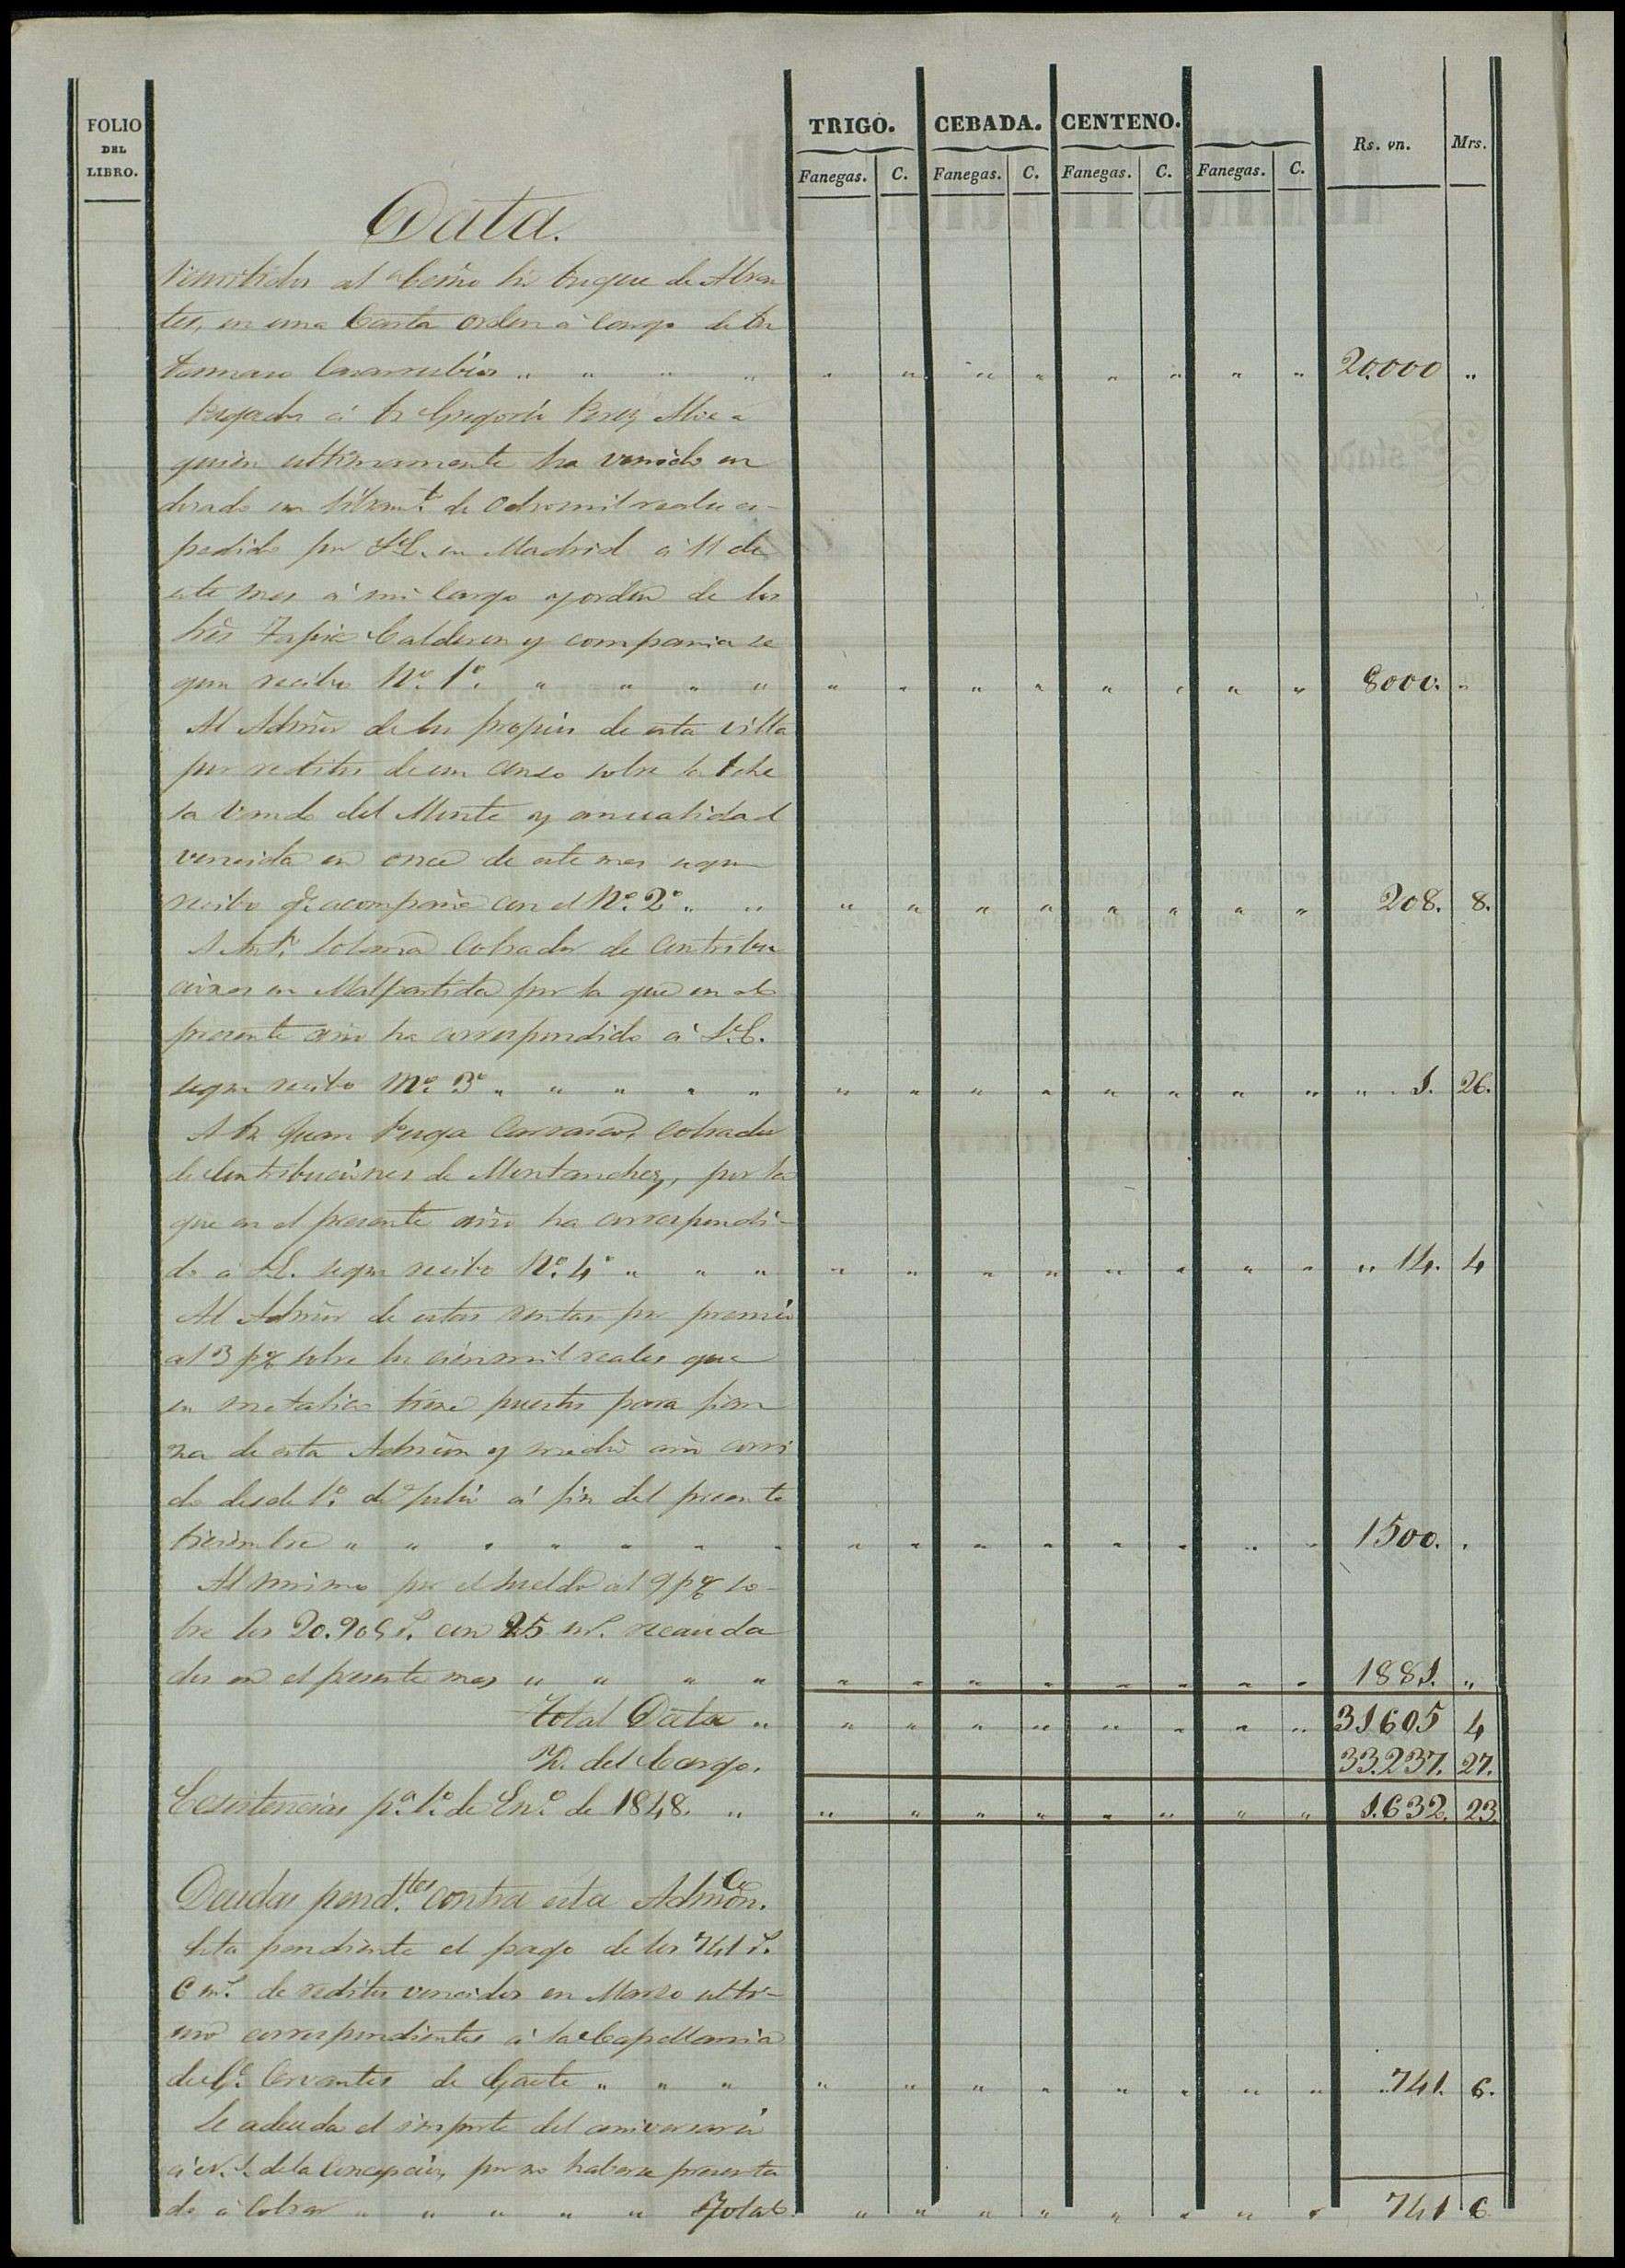 FOLIO DEL LIBRO.
TRIGO. CEBADA. CENTENO. Rs. vn. Mrs.
Fanegas. C. Fanegas. C. Fanegas. C. Fanegas. C.
Data.
Remitidos al Excmo Sr Duque de Abran
tes, en una Carta orden á cargo de Dn
Casarrubios " " " " " " " " " " " " 20,000 "
Pagados á Dn Gregorio Perez Aloe a
quien ultimamente ha venido en
dosado un libramto. de Ochomil reales es-
pedido por S.E. en Madrid á 11 de
este mes á mi cargo y orden de los
Sres Tapia Calderon y compania se
gun recibo No. 1o. " " " " " " " " " " " " 8000. "
Al Admor de los propios de esta villa
por reditos de un censo sobre la dehe
sa del Monte y anualidad
vencida en once de este mes segun
recibo qe. acompaña con el No. 2o. " " " " " " " " " " 208. 8.
A Anto. Cobrador de Contribu
ciones en Malpartida por la que en el
presente año ha correspondido á S.E.
segun recibo No. 3o " " " " " " " " " " " " " " 1. 26.
A Dn Juan Carrasco, cobrador
de Contribuciones de Montanchez, por la
que en el presente año ha correspondi-
do á S.E. segun recibo No. 4o " " " " " " " " " " " " 14. 4
Al Admor de estas rentas por premio
al 3 p% sobre los cien mil reales que
en metalico tiene puestos para fian
za de esta Admion y medio año corri
do desde 1o. de Julio á fin del presente
Diciembre " " " " " " " " " " " " " " " 1500. "
Al mismo por el sueldo al 9 p% so-
bre los 20.905 rs. con 25 ms. recauda
dos en el presente mes " " " " " " " " " " " " 1881. "
Total Data " " " " " " " " " 31605 4
Yd. del Cargo. 33.237. 27.
Existencias pa. 1o. de Eno. de 1848. " " " " " " " " " 1.632. 23.
Deudas pendtes. contra esta Admon.
Esta pendiente el pago de los 741 rs.
6 ms. de reditos vencidos en Marzo ulti-
mo correspondientes á la Capellania
de Cervantes de Gaete " " " " " " " " " " " " 741. 6.
Se adeuda el importe del aniversario
á N. S. de la Concepcion, por no haberse presenta
do á cobrar " " " " " Total " " " " " " " " 741 6